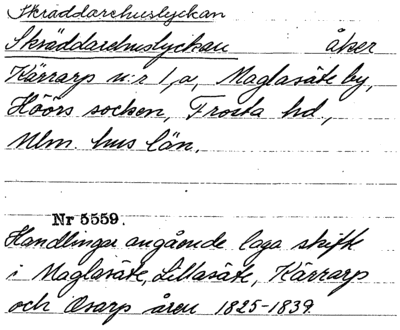 Skräddarehuslyckan
Skräddarehuslyckan åker
Kärrarp n:r 1,a, Maglasäte by,
Höörs socken, Frosta hd,
Mlm. hus län.
Nr 5559.
Handlingar angående laga skifte
i Maglasäte, Lillasäte, Kärrarp
och Osarp åren 1825-1839.